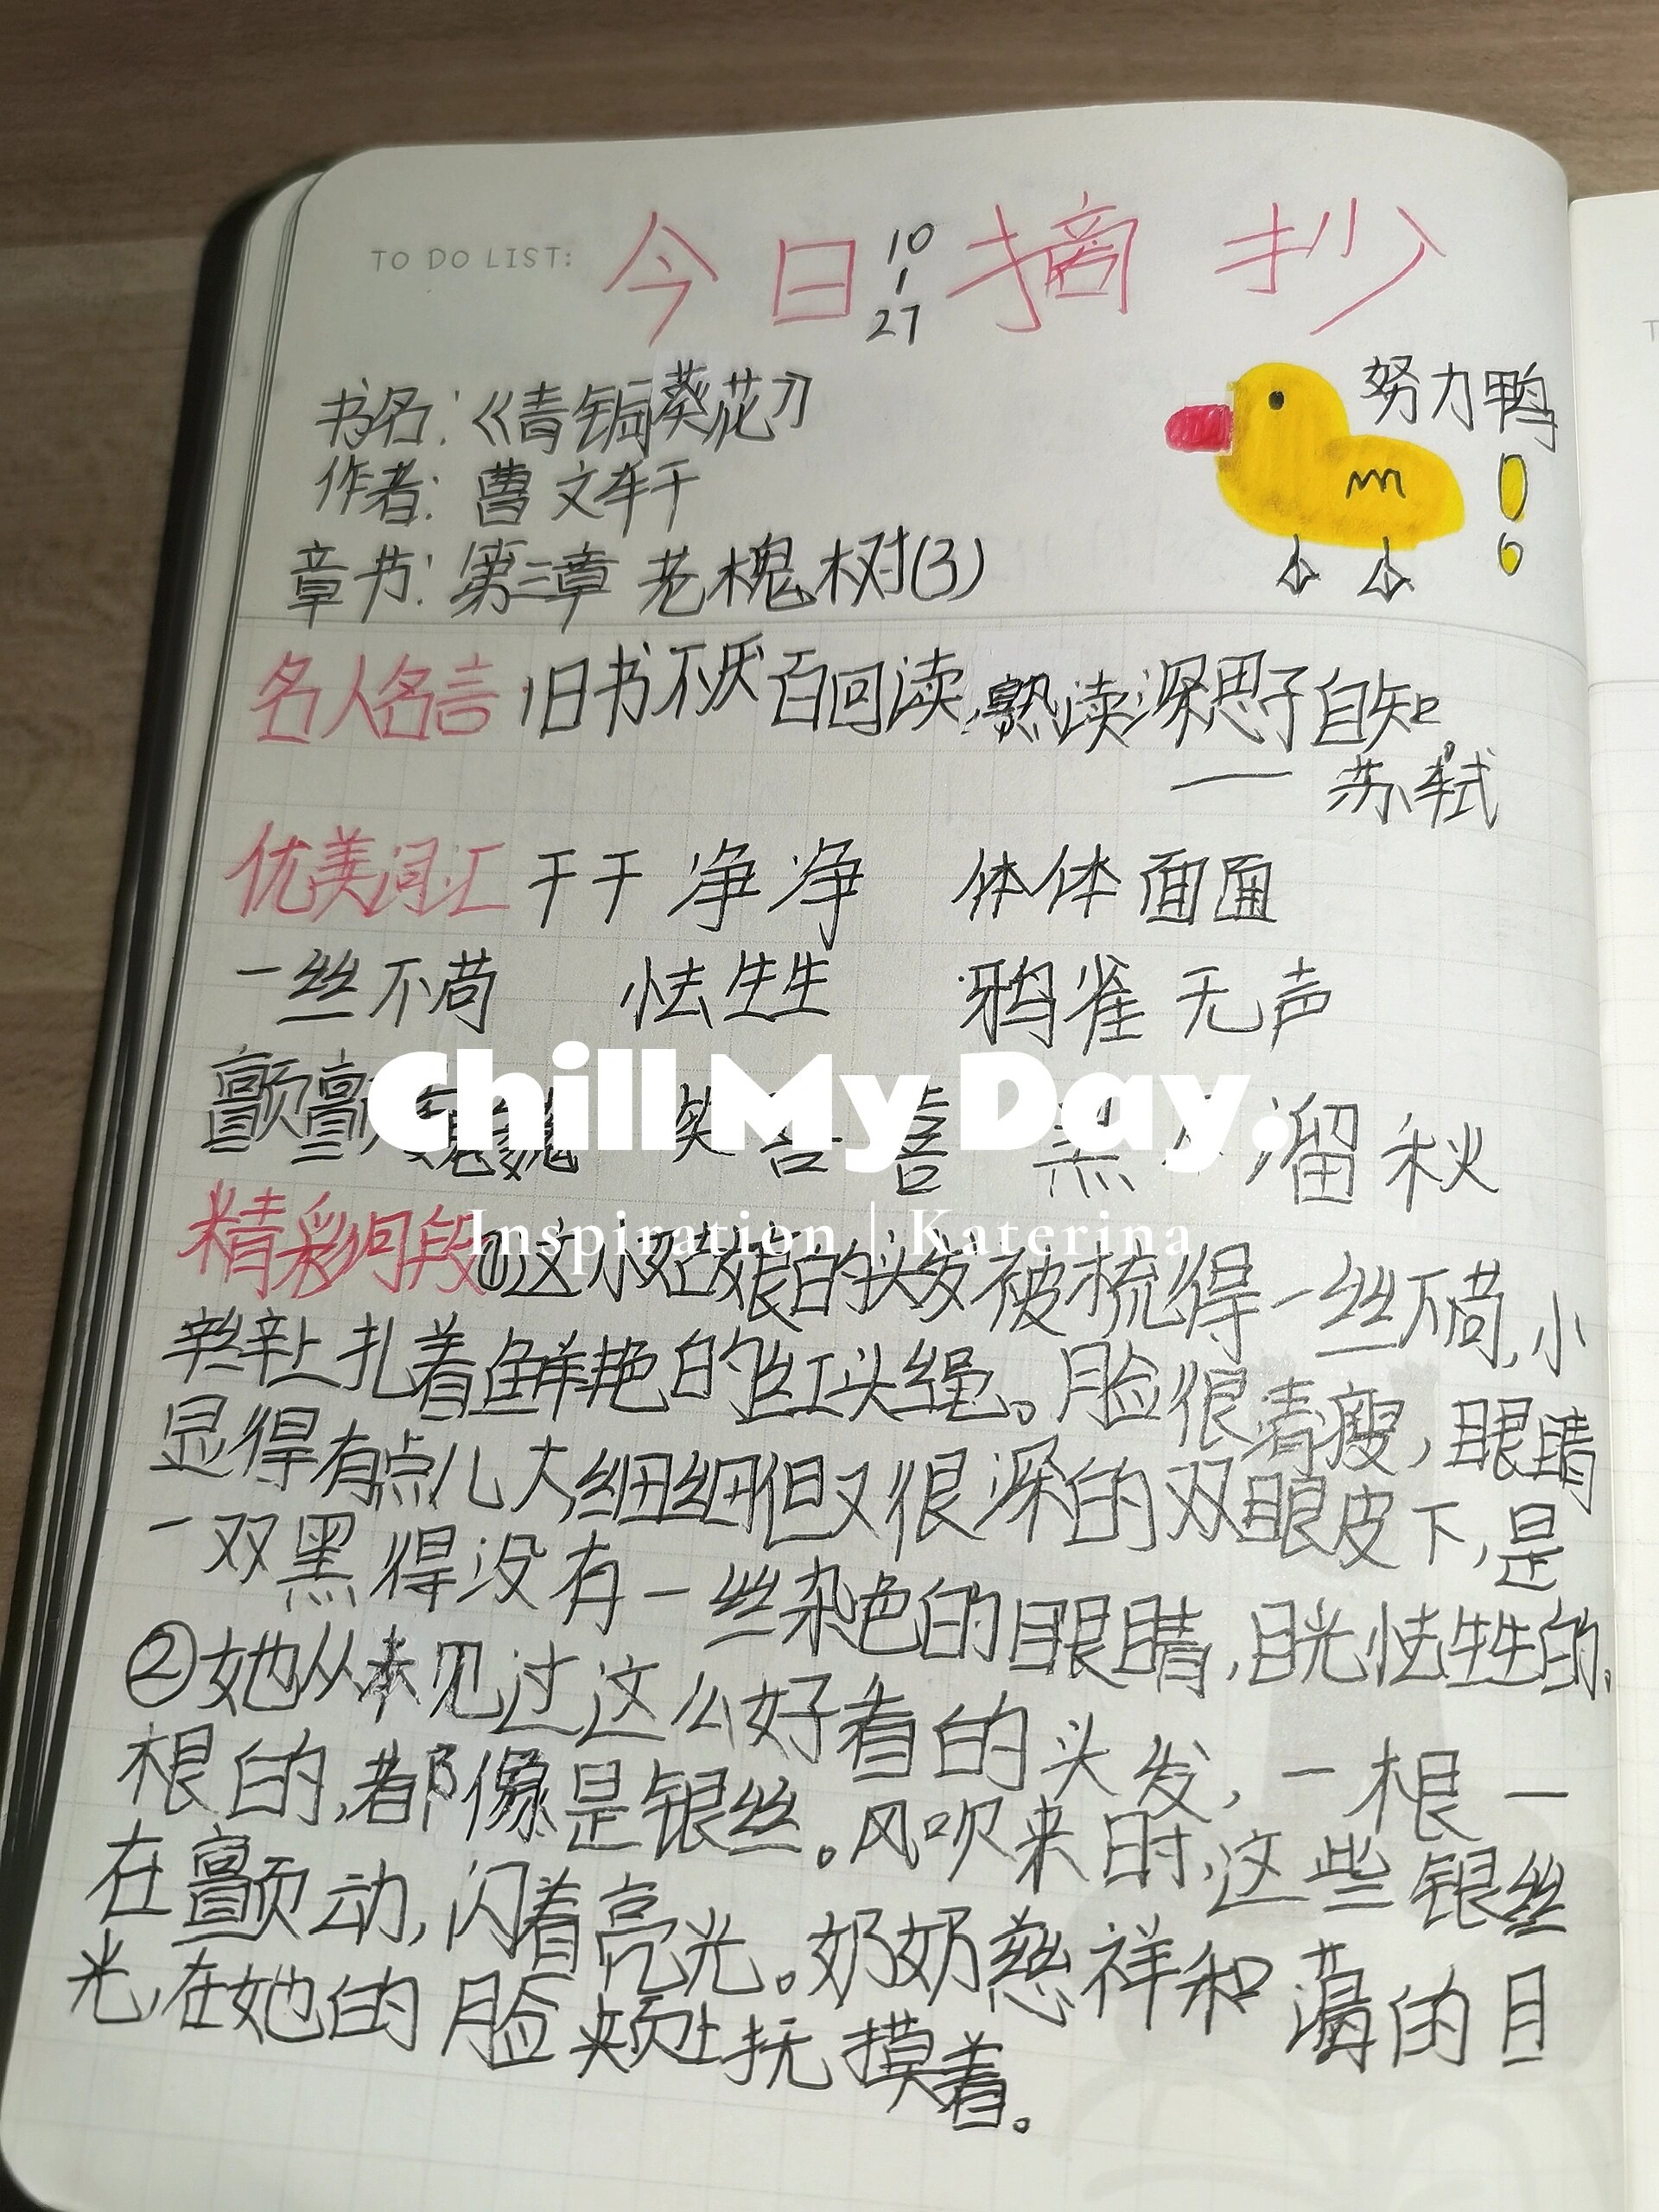 TO DO LIST: 今日 10/27 摘抄
书名:《青铜葵花》
努力鸭!
作者:曹文轩
章节:第三章 老槐树(3)
名人名言 旧书不厌百回读,熟读深思子自知。
——苏轼
优美词汇 干干净净 体体面面
一丝不苟 怯生生 鸦雀无声
颤颤巍巍 喜 黑 溜秋
Chill My Day.
Inspiration | Katerina
精彩片段①这小姑娘的头发被梳得一丝不苟,小
辫上扎着鲜艳的红头绳。脸很清瘦,眼睛
显得有点儿大,细细但又很深的双眼皮下,是
一双黑得没有一丝杂色的眼睛,目光怯生生的。
②她从未见过这么好看的头发,一根一
根的,都像是银丝。风吹来时,这些银丝
在颤动,闪着亮光。奶奶慈祥和蔼的目
光,在她的脸颊上抚摸着。